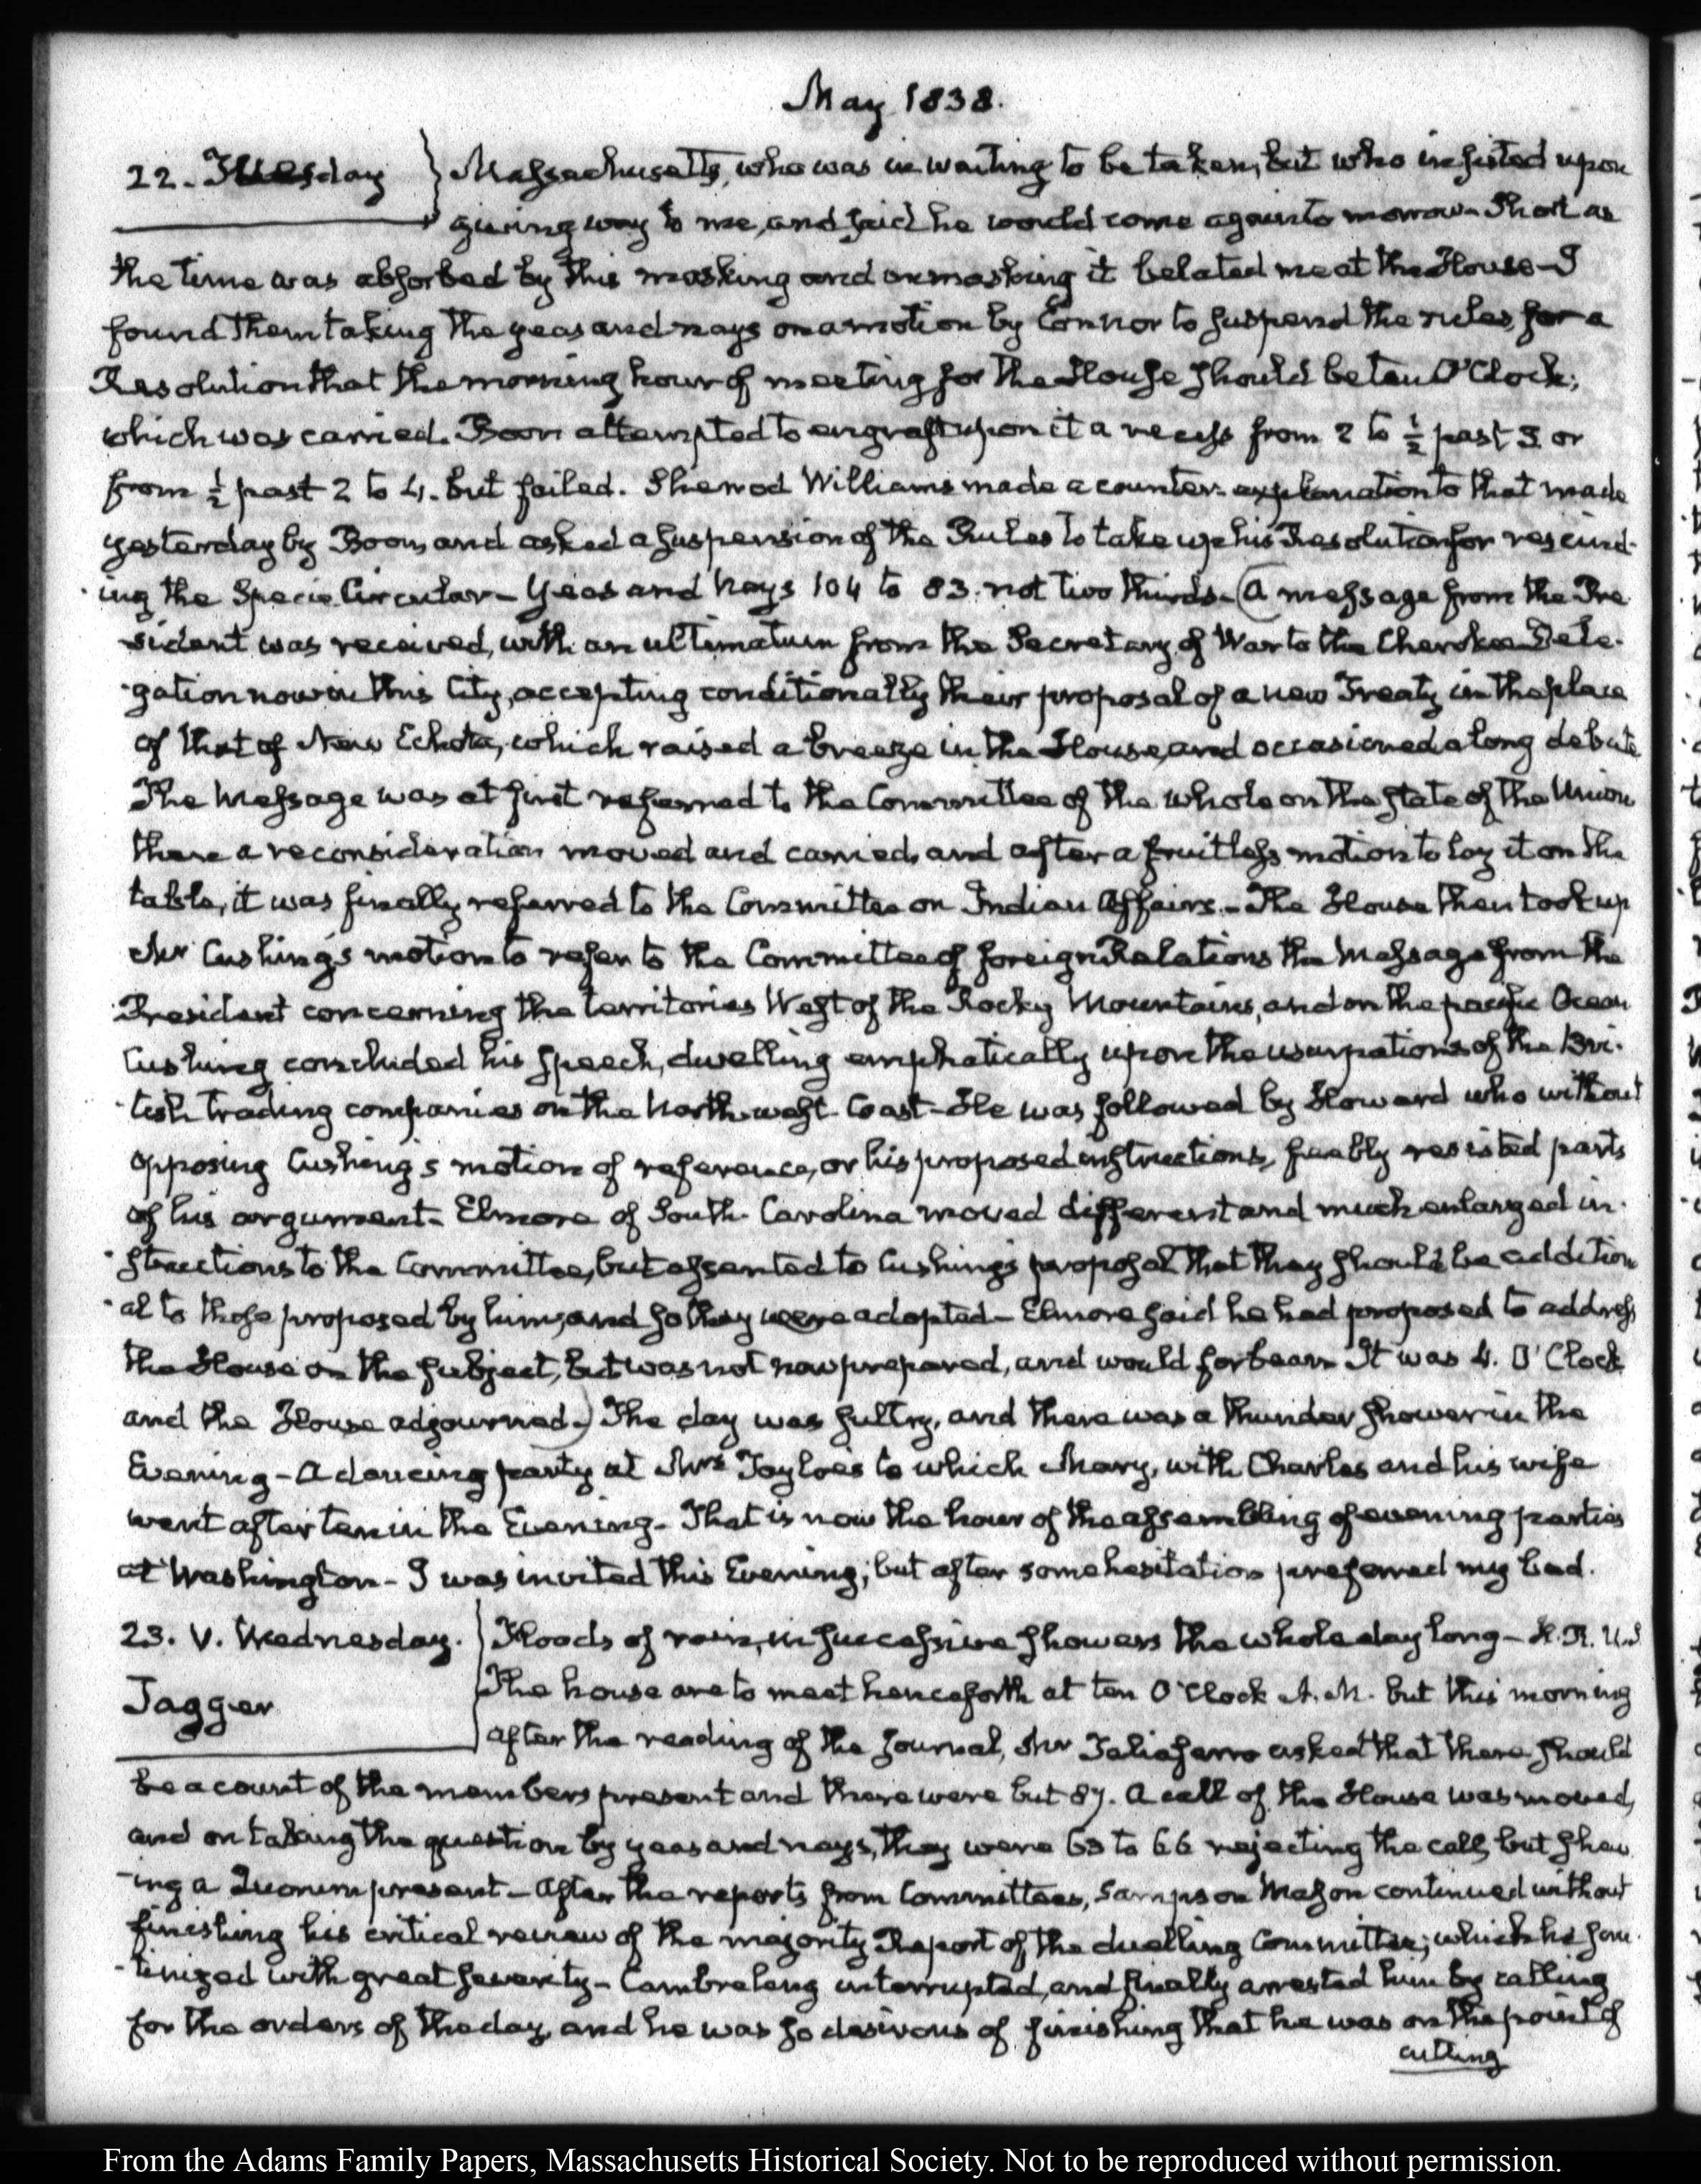 May 1838.
22. Tuesday
Massachusetts, who was in waiting to be taken, but who insisted upon
giving way to me, and said he would come again to morrow. Short as
the time was absorbed by this masking and unmasking it belated me at the House — I
found them taking the yeas and nays on a motion by Connor to suspend the rules for a
Resolution that the morning hour of meeting for the House should be ten O'Clock;
which was carried. Boon attempted to engraft upon it a recess from 2 to ½ past 3 or
from ½ past 2 to 4. but failed. Sherrod Williams made a counter-explanation to that made
yesterday by Boon, and asked a suspension of the Rules to take up his Resolution for rescind-
ing the Specie Circular — Yeas and Nays 104 to 83. not two thirds — (A message from the Pre
sident was received, with an ultimatum from the Secretary of War to the Cherokee Dele-
gation now in this City, accepting conditionally their proposal of a new Treaty in the place
of that of New Echota, which raised a breeze in the House, and occasioned a long debate
The Message was at first referred to the Committee of the whole on the state of the Union
then a reconsideration moved and carried, and after a fruitless motion to lay it on the
table, it was finally referred to the Committee on Indian Affairs. — The House then took up
Mr Cushing's motion to refer to the Committee of foreign Relations the Message from the
President concerning the territories West of the Rocky Mountains, and on the pacific Ocean
Cushing concluded his speech, dwelling emphatically upon the usurpations of the Bri-
tish trading companies on the North-west Coast — He was followed by Howard who without
opposing Cushing's motion of reference, or his proposed instructions, feebly resisted parts
of his argument — Elmore of South-Carolina moved different and much enlarged in-
structions to the Committee, but assented to Cushing's proposal that they should be addition
al to those proposed by him, and so they were adopted — Elmore said he had proposed to address
the House on the subject, but was not now prepared, and would forbear. It was 4. O'Clock
and the House adjourned.) The day was sultry, and there was a thunder shower in the
Evening — A dancing party at Mrs Tayloe's to which Mary, with Charles and his wife
went after ten in the Evening — That is now the hour of the assembling of evening parties
at Washington — I was invited this Evening; but after some hesitation preferred my bed.
23. V. Wednesday.
Jagger
Floods of rain, in successive showers the whole day long — H.R. U.S.
The house are to meet henceforth at ten O'Clock A.M. but this morning
after the reading of the Journal, Mr Taliaferro asked that there should
be a count of the members present and there were but 87. A call of the House was moved,
and on taking the question by yeas and nays, they were 63 to 66 rejecting the call, but shew
ing a Quorum present — After the reports from Committees, Sampson Mason continued without
finishing his critical review of the majority Report of the duelling Committee; which he scru-
tinized with great severity — Cambreleng interrupted, and finally arrested him by calling
for the orders of the day, and he was so desirous of finishing that he was on the point of
cutting
From the Adams Family Papers, Massachusetts Historical Society. Not to be reproduced without permission.